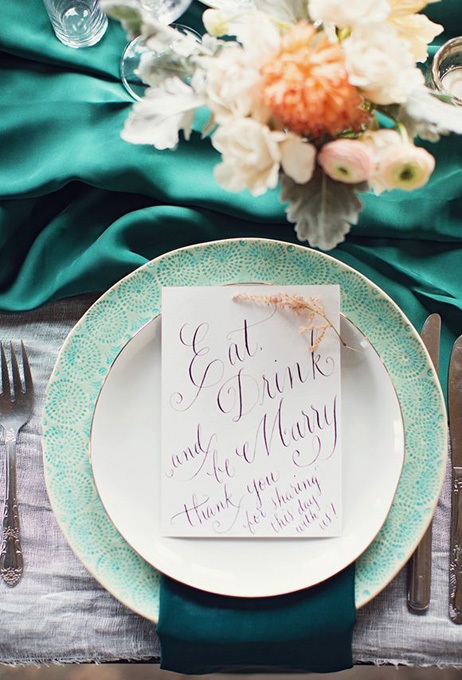 Eat,
Drink
and be Marry
thank you
for sharing
this day
with us!